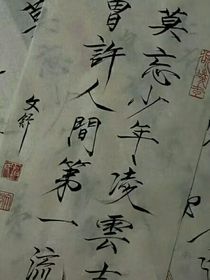 莫忘少年凌雲
曾許人間第一流
文舒